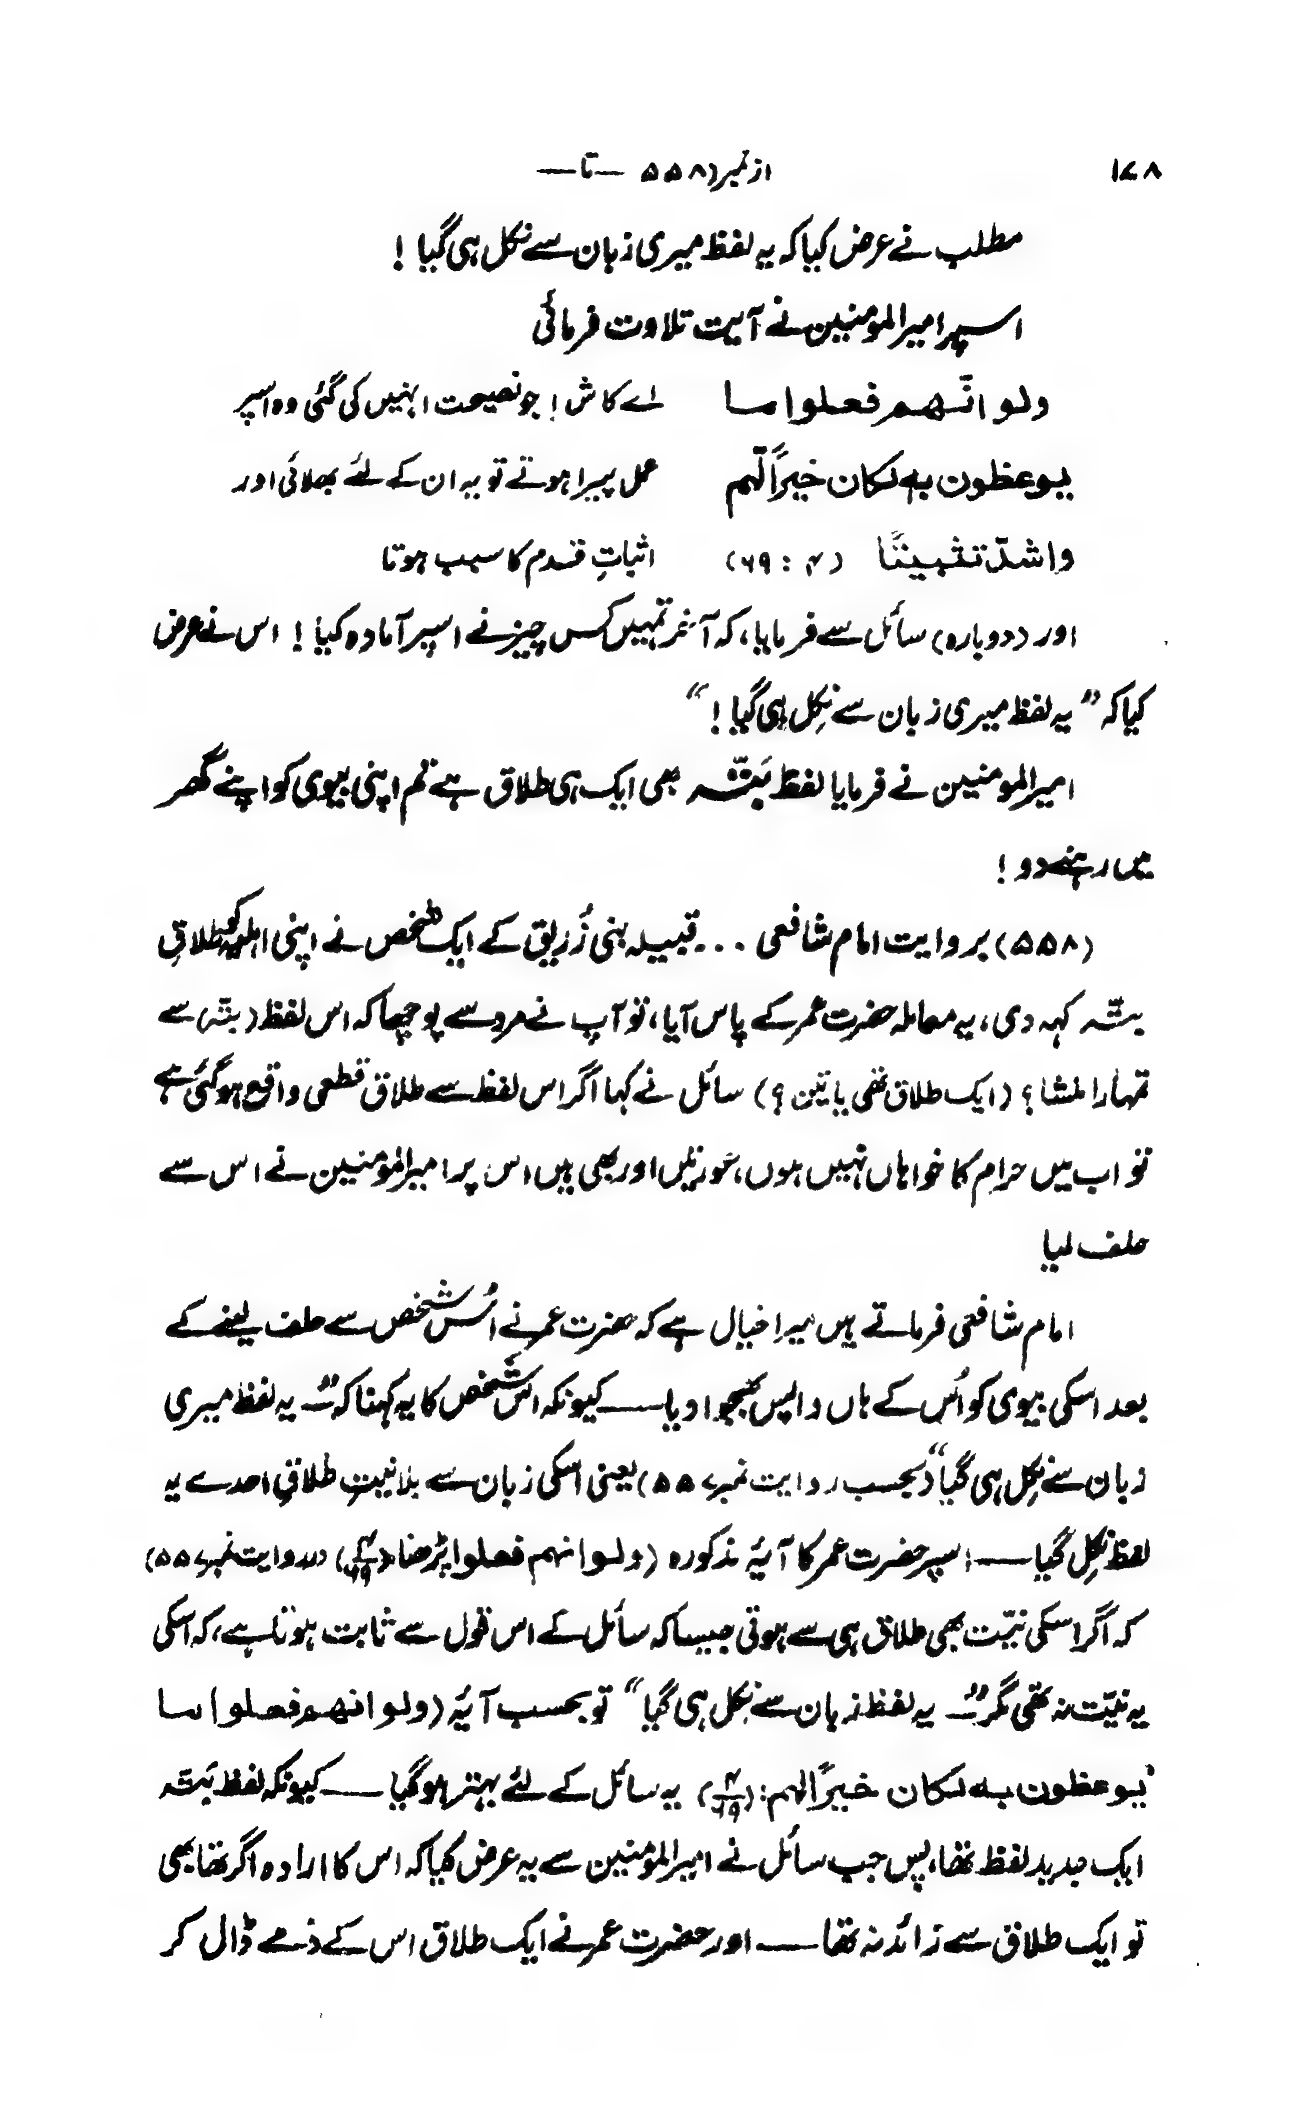 ۱۷۸ از نمبر (۵۵۸ —تا—
مطلب نے عرض کیا کہ یہ لفظ میری زبان سے نکل ہی گیا !
اسپر امیر المومنین نے آیت تلاوت فرمائی
ولو انّھم فعلوا ما اے کاش ! جو نصیحت انہیں کی گئی وہ اسپر
یوعظون بہ لکان خیراً لّہم عمل پیرا ہوتے تو یہ ان کے لئے بھلائی اور
واشدّ تثبیتًا (۴ : ۶۹) اثباتِ قدم کا سبب ہوتا
اور (دوبارہ) سائل سے فرمایا، کہ آخر تمہیں کس چیز نے اسپر آمادہ کیا ! اس نے عرض
کیا کہ ” یہ لفظ میری زبان سے نکِل ہی گیا ! “
امیر المومنین نے فرمایا لفظ بَتّہ بھی ایک ہی طلاق ہے تم اپنی بیوی کو اپنے گھر
میں رہنے دو !
(۵۵۸) بروایت امام شافعی ... قبیلہ بنی زُریق کے ایک شخص نے اپنی اہلیہ کو طلاقِ
بتّہ کہہ دی، یہ معاملہ حضرت عمر کے پاس آیا، تو آپ نے مرد سے پوچھا کہ اس لفظ (بتّہ) سے
تمہارا منشا ؟ (ایک طلاق تھی یا تین ؟) سائل نے کہا اگر اس لفظ سے طلاق قطعی واقع ہو گئی ہے
تو اب میں حرام کا خواہاں نہیں ہوں، عورتیں اور بھی ہیں اس پر امیر المومنین نے اس سے
حلف لیا
امام شافعی فرماتے ہیں میرا خیال ہے کہ حضرت عمر نے اُس شخص سے حلف لینے کے
بعد اسکی بیوی کو اُس کے ہاں واپس بھجوا دیا—— کیونکہ اس شخص کا یہ کہنا کہ ”— یہ لفظ میری
زبان سے نکِل ہی گیا“ (بحسب روایت نمبر ۵۵۷) یعنی اسکی زبان سے بلا نیتِ طلاقِ احدے یہ
لفظ نکِل گیا —— اسپر حضرت عمر کا آیۂ مذکورہ (ولو انہم فعلوا پڑھنا (۴/۶۹) (در روایت نمبر ۵۵۷)
کہ اگر اسکی نیّت بھی طلاق ہی سے ہوتی جیسا کہ سائل کے اس قول سے ثابت ہوتا ہے، کہ اسکی
یہ نیّت نہ تھی مگر ”— یہ لفظ زبان سے نکِل ہی گیا“ تو بحسب آیۂ (ولو انھم فعلوا ما
یوعظون بہ لکان خیراً لہم: (۴/۶۹) یہ سائل کے لئے بہتر ہو گیا —— کیونکہ لفظ بَتّہ
ایک جدید لفظ تھا، پس جب سائل نے امیر المومنین سے یہ عرض کیا کہ اس کا ارادہ اگر تھا بھی
تو ایک طلاق سے زائد نہ تھا —— اور حضرت عمر نے ایک طلاق اس کے ذمے ڈال کر